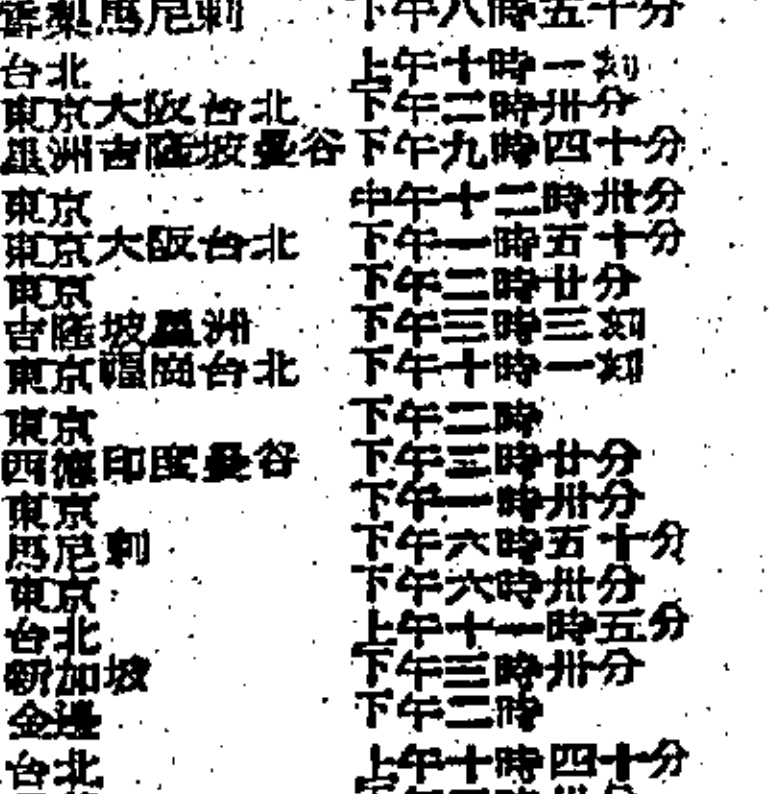 雪梨馬尼剌 下午八時五十分
台北 上午十時一刻
東京大阪台北 下午二時卅分
星洲吉隆坡曼谷 下午九時四十分
東京 中午十二時卅分
東京大阪台北 下午一時五十分
東京 下午二時廿分
吉隆坡星洲 下午三時三刻
東京福岡台北 下午十時一刻
東京 下午二時
西德印度曼谷 下午三時廿分
東京 下午一時卅分
馬尼剌 下午六時五十分
東京 下午六時卅分
台北 上午十一時五分
新加坡 下午三時卅分
金邊 下午二時
台北 上午十時四十分